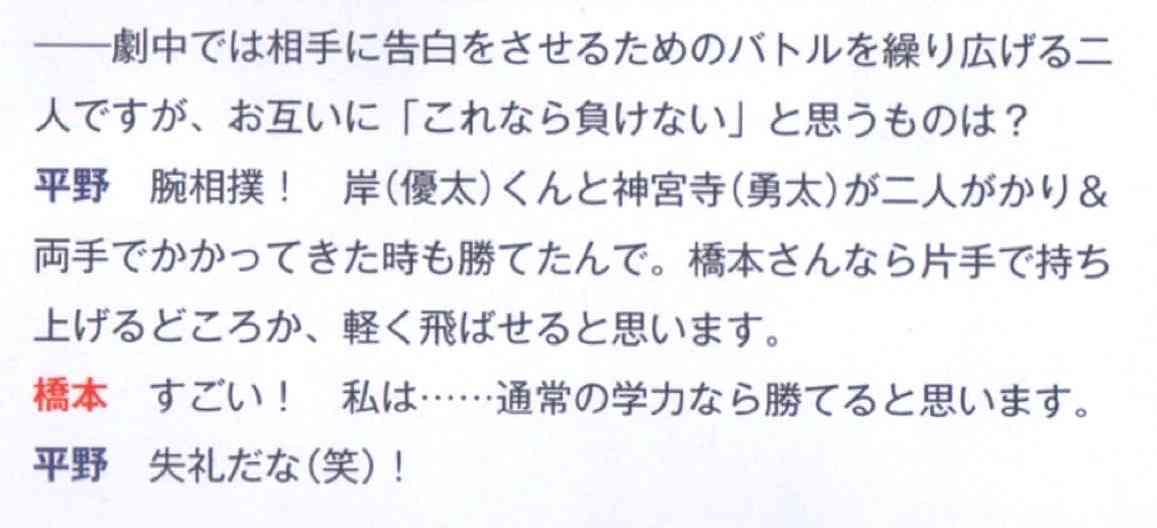 ――劇中では相手に告白をさせるためのバトルを繰り広げる二
人ですが、お互いに「これなら負けない」と思うものは？
平野　腕相撲！　岸(優太)くんと神宮寺(勇太)が二人がかり＆
両手でかかってきた時も勝てたんで。橋本さんなら片手で持ち
上げるどころか、軽く飛ばせると思います。
橋本　すごい！　私は……通常の学力なら勝てると思います。
平野　失礼だな(笑)！